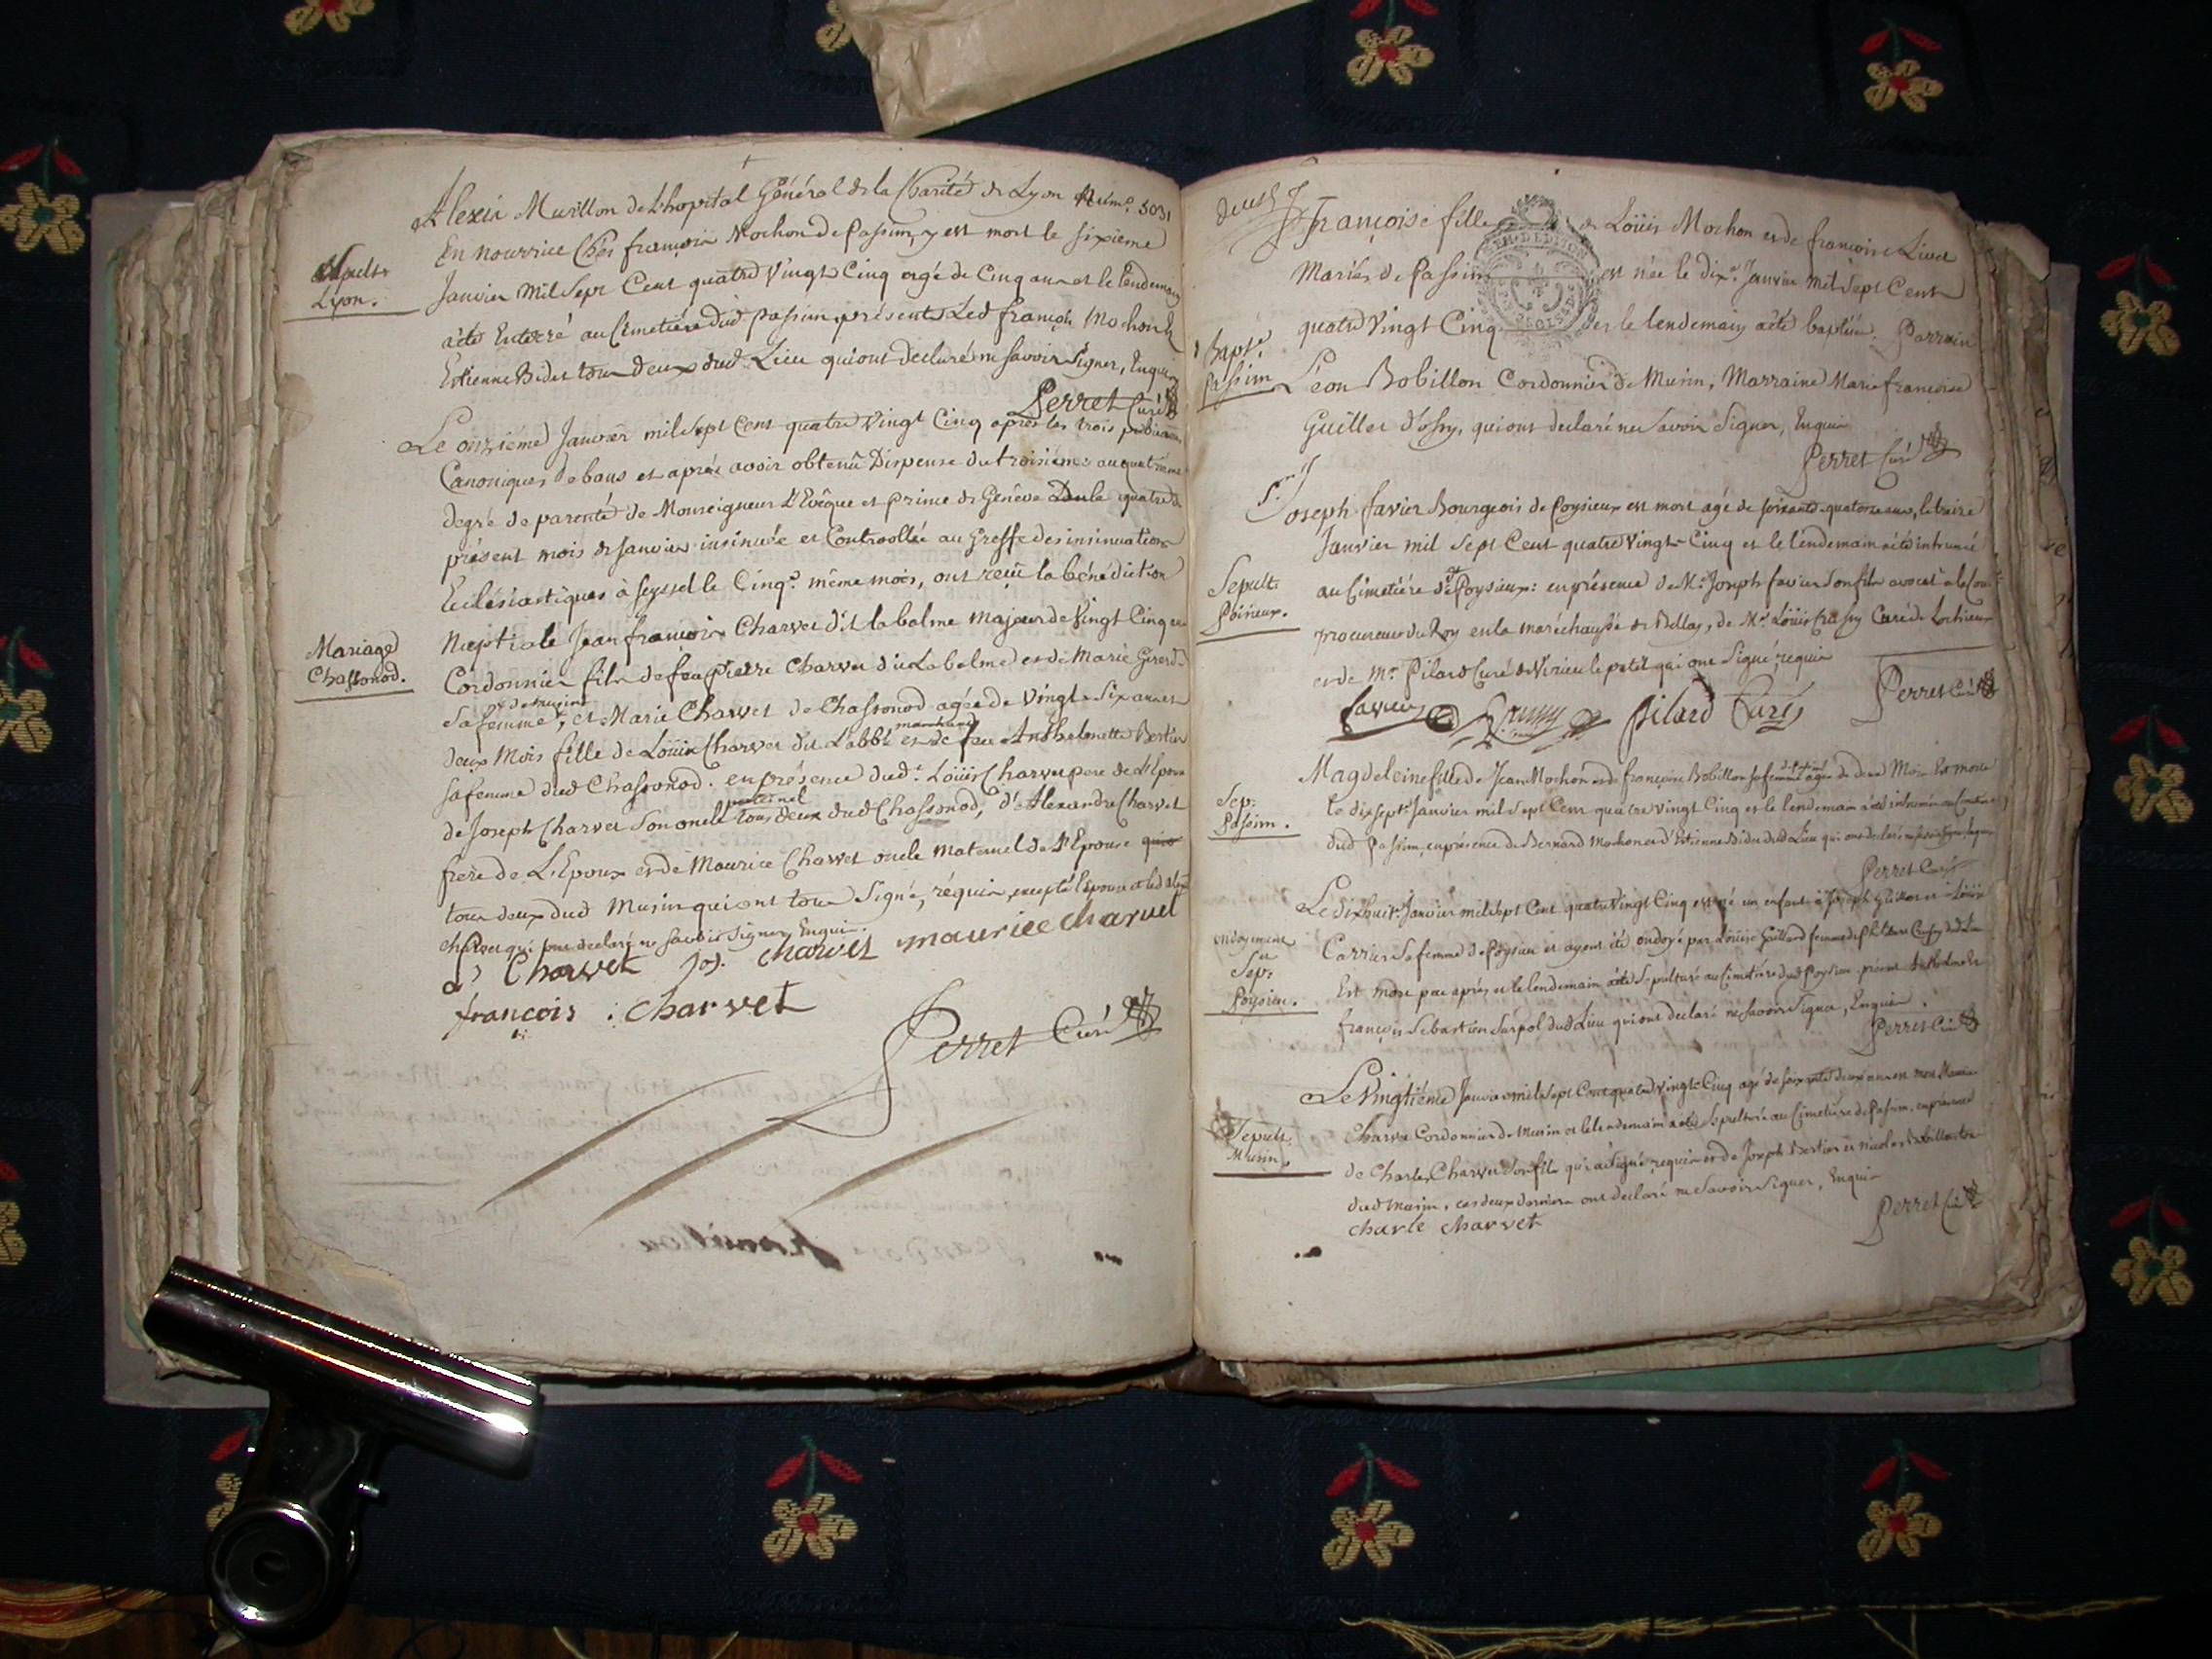 Alexis Murillon de L'hopital Général de la Charité de Lyon Num.º 5031
En nourrice Chés françois Mochon de Passin, y est mort le sixieme
Sepult.
Lyon.
Janvier Mil Sept Cent quatre Vingt Cinq agé de Cinq ans et le lendemain
a été Enterré au Cimetière dud. Passin présents Led. françois Mochon &
Estienne Bidet tous deux dud. Lieu qui ont declaré ne savoir signer, Enquis
Perret Curé
Le onzième Janvier mil sept Cent quatre Vingt Cinq après les trois publications
Canoniques de bans et après avoir obtenû Dispense du troisième au quatrième
degré de parenté de Monseigneur L'Evêque et prince de Genève du quatre
présent mois de Janvier insinuée et Controollée au Greffe des insinuations
Ecclésiastiques à Seyssel le Cinq.e même mois, ont reçû la bénédiction
Mariage
Chassonod.
Nuptiale Jean françois Charvet dit labalme majeur de Vingt Cinq ans
Cordonnier fils de feu Pierre Charvet dit Labalme et de Marie Girerd
de musin
sa femme, et Marie Charvet de Chassonod agée de Vingt Six ans et
marchand
deux Mois fille de Loüis Charvet dit Labbé et de feu Anthelmette Bertin
sa femme dud Chassonod. en présence dud.t Loüis Charvet pere de L'Epouse
paternel
de Joseph Charvet son oncle tous deux dud Chassonod, d'Alexandre Charvet
frere de L'Epoux et de Maurice Charvet oncle Maternel de L'Epouse
tous deux dud Musin qui ont tous Signé, réquis, excepté l'epouse et led Alex.
charvet qui ont declaré ne savoir signer, Enquis.
Charvet jos. charvet maurice charvet
francois : charvet
Perret Curé
deux
Françoise fille de Loüis Mochon et de françoise Livet
Mariés de Passin est née le dix.e Janvier mil sept Cent
quatre Vingt Cinq et le lendemain a été baptisée. Parrain
Bapt.
Passin
Léon Bobillon Cordonnier de Musin, Marraine Marie françoise
Guillet d'ossy, qui ont declaré ne savoir Signer, Enquis
Perret Curé
S.r Joseph favier Bourgeois de Poysieux est mort agé de soixante quatorze ans, le treize
Janvier mil Sept Cent quatre Vingt Cinq et le lendemain a été inhumé
Sepult.
Poisieux.
au Cimetière de Poysieux: en présence de M.e Joseph favier son fils avocat a la Cour
procureur du Roy en la maréchaussée de Bellay, de M.e Loüis Crussy Curé de Lochieu
et de M.e Pilard Curé de Virieu le petit qui ont Signé, requis
favier Crussy Pilard Curé Perret Curé
Magdeleine fille de Jean Mochon et de françoise Bobillon sa femme agée de deux Mois Est morte
Sep.
Passin.
le dixsept.e Janvier mil Sept Cent quatre Vingt Cinq et le lendemain a été inhumée au Cimetière
dud Passin, en présence de Bernard Mochon et d'Estienne Bidet dud Lieu qui ont declaré ne savoir signer Enquis
Perret Curé
Le dixhuit.e Janvier mil Sept Cent quatre Vingt Cinq est né un enfant à Joseph Guillot et à Loüise
ondoyment
et
Sep.
Poysieu.
Carrier sa femme de Poysieu et ayant été ondoyé par Loüise Guillard femme de dud Lieu
Est mort peu après et le lendemain a été Sepulturé au Cimetière dud Poysieu. présent Anthelme et
françois Sebastien Surpol dud Lieu qui ont declaré ne savoir Signer, Enquis.
Perret Curé
Le Vingtième Janvier mil Sept Cent quatre Vingt Cinq agé de soixante deux ans est mort Maurice
Sepult.
Musin.
Charvet Cordonnier de Musin et le lendemain a été Sepulturé au Cimetière de Passin, en présence
de Charles Charvet son fils qui a Signé, requis et de Joseph Bertier et Nicolas Bobillon tous
dud Musin, ces deux derniers ont declaré ne Savoir Signer, Enquis
charle charvet Perret Curé